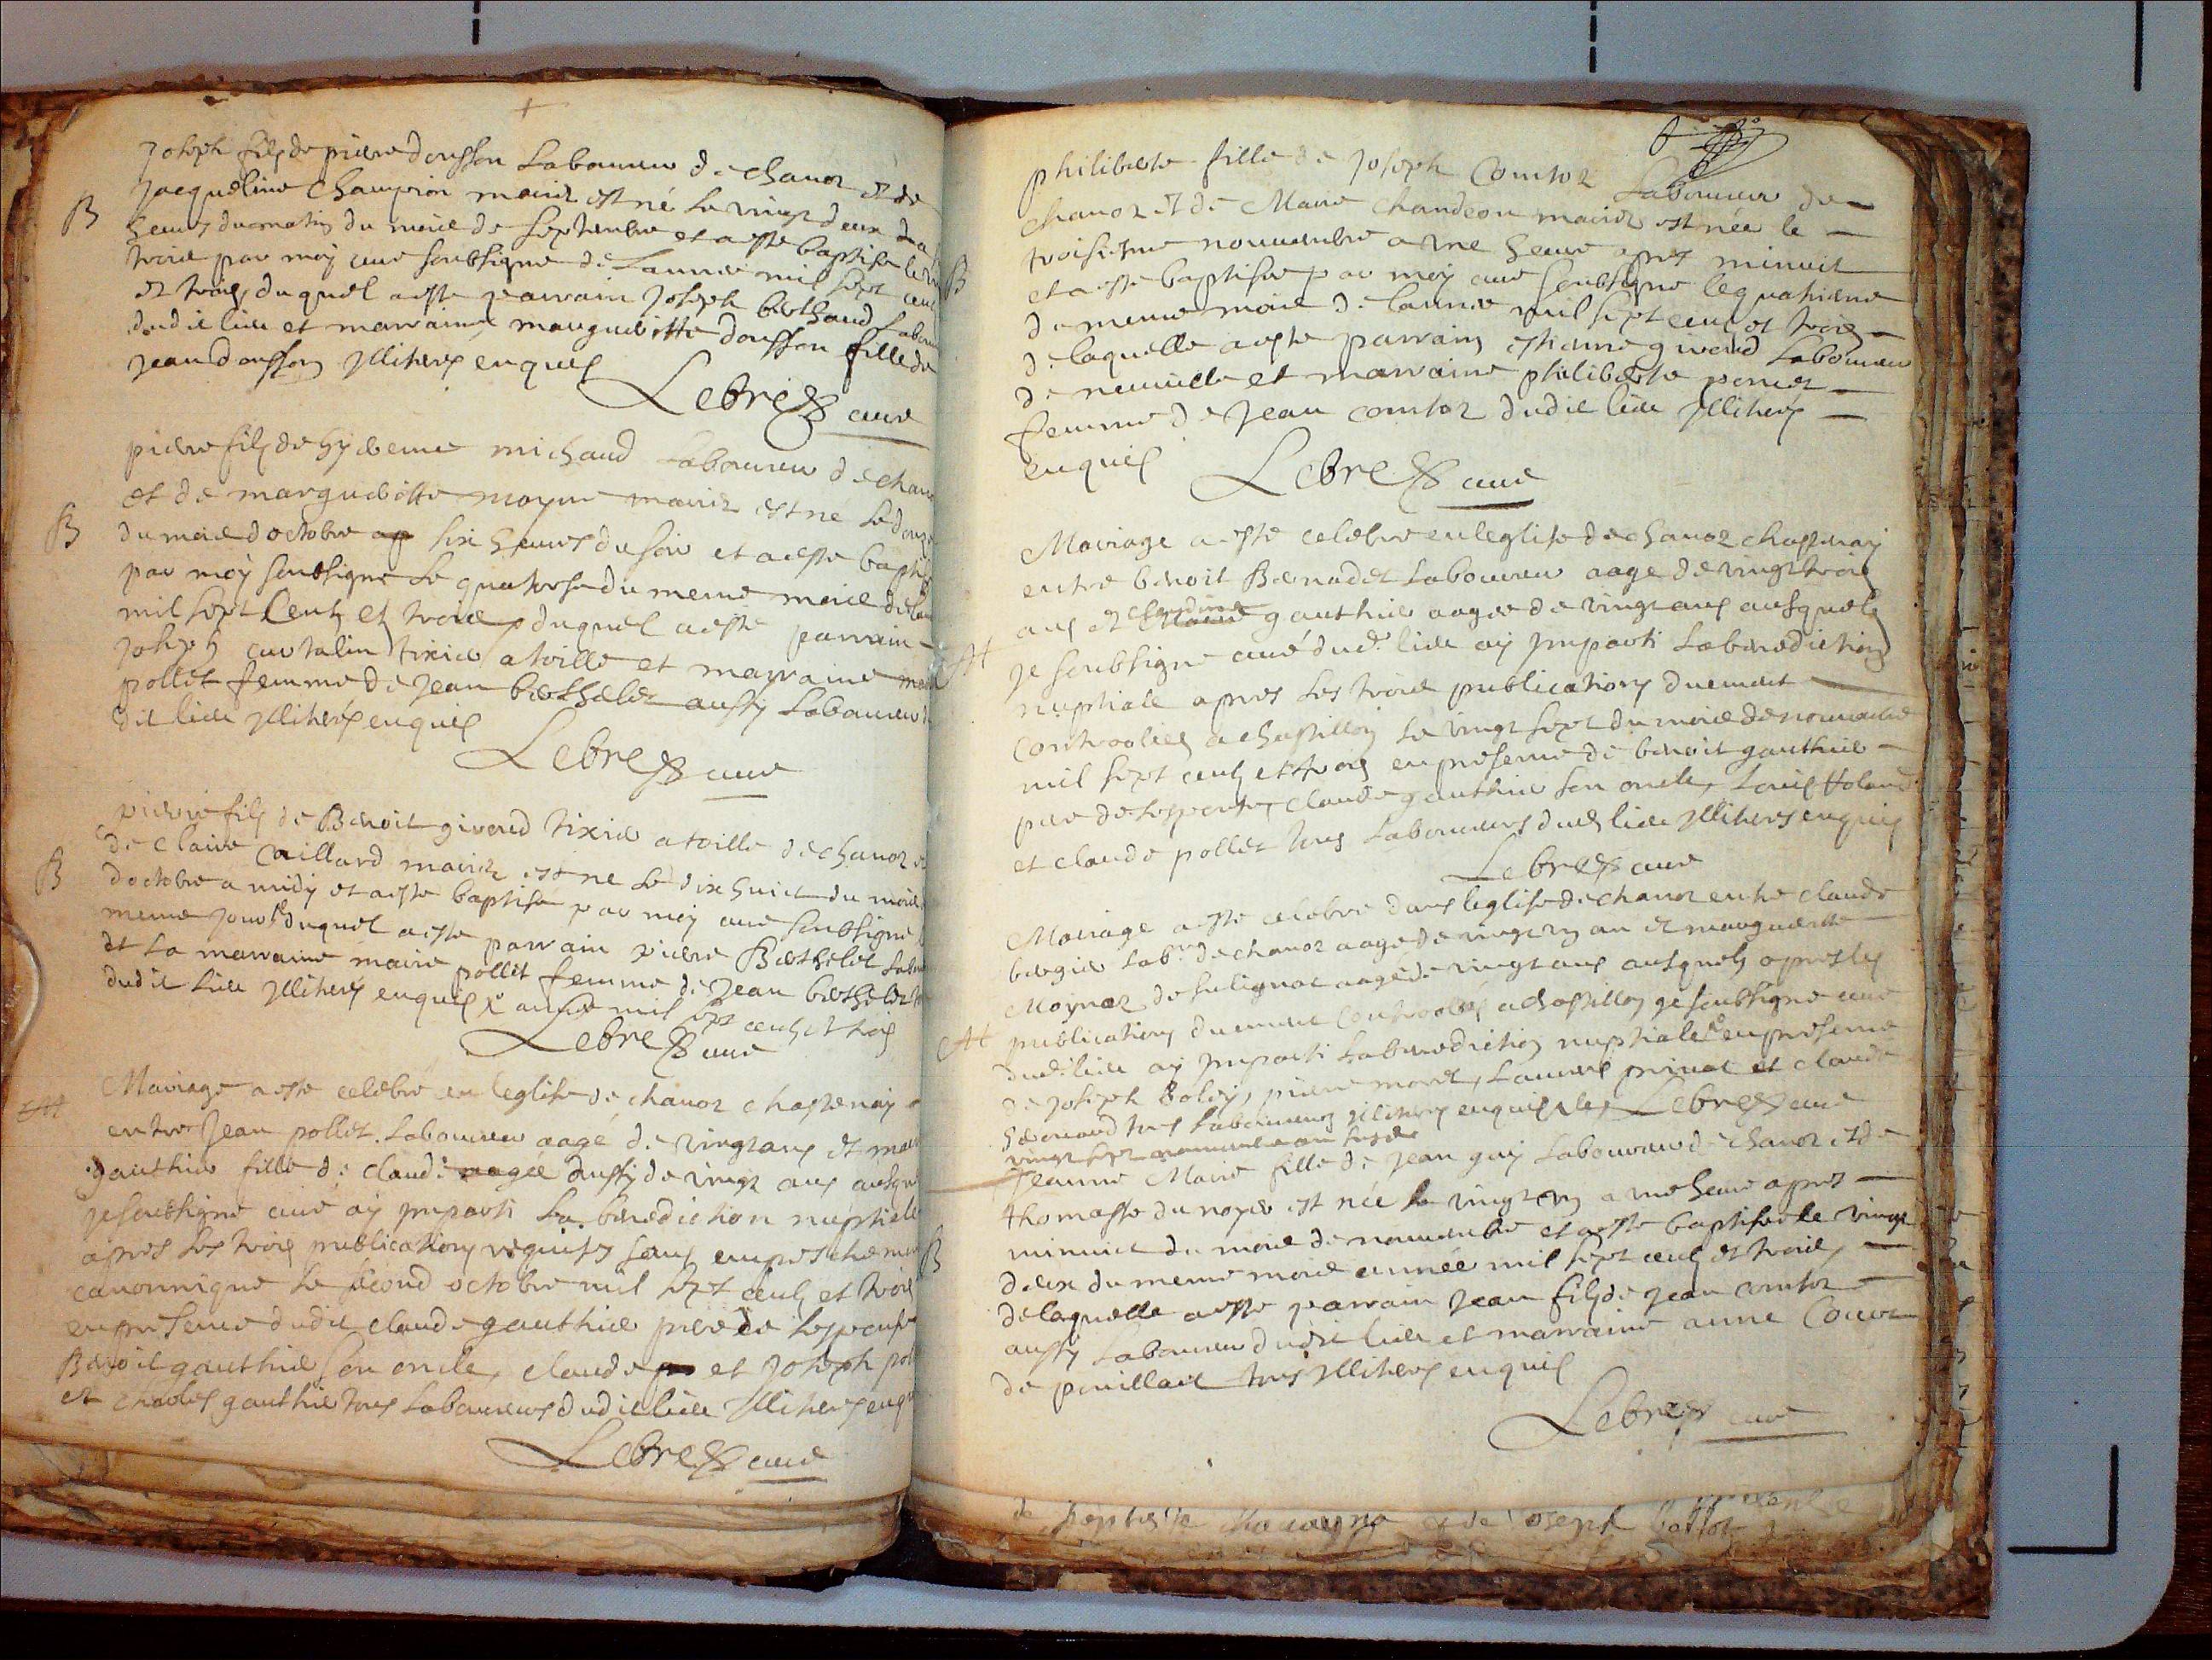 Joseph fils de pierre donsson Laboureur de chanoz et de
Jacqueline Champion mariez est né le vingt deux
B
heures du matin du mois de septembre et a esté baptisé le
trois par moy curé soubsigné de Lannée mil sept cent
et trois, duquel a esté parrain Joseph berthaud Labour
dudit lieu et marraine margueritte donsson fille de
Jean donsson yllitherés enquis
Lebre curé
pierre fils de hyereme michaud Laboureur de chano
et de margueritte moyne mariez est né le douz
B
du mois doctobre a six heures du soir et a esté bapti
par moy soubsigné le quatorse du meme mois de lan
mil sept Cents et trois, duquel a esté parrain
Joseph curtalin tixier a toille et marraine ma
pollet femme de Jean berthelet aussy Laboureur
dit lieu yllitherés enquis
Lebre curé
pierre fils de Benoit giroud tixier a toille de chanoz e
de Claire Caillard mariez est né le dix huict du mois
B
doctobre a midy et a esté baptisé par moy curé soubsigné l
meme jour duquel a esté parrain pierre Berthelet Labour
et la marraine marie pollet femme de Jean berthelet
dudit lieu yllitherés enquis année mil sept cents et trois
Lebre curé
M
Mariage a esté celebré en leglise de chanoz chastenay
entre Jean pollet Laboureur aagé de vingt ans et mari
gauthier fille de claude aagée aussy de vingt ans ausque
je soubsigné curé ay jmparti La benediction nuptiale
apres les trois publications requises sans empeschement
canonnique le second octobre mil sept cents et trois
en presence dudit claude gauthier pere de lespouse
Benoit gauthier son oncle, claude et Joseph poll
et charles gauthier tous Laboureurs dudit lieu yllitherés enqu
Lebre curé
philiberte fille de Joseph Comtoz Laboureur de
chanoz et de Marie chandeon mariez est née le
troisiesme nouuembre a une heure apres minuit
B
et a esté baptisée par moy curé soubsigné le quatrieme
du meme mois de lannée mil sept cents et trois
de laquelle a esté parrain estienne giraud Laboureur
de neuuille et marraine philiberte poncet
femme de Jean comtoz dudit lieu yllitherés
enquis
Lebre curé
Mariage a esté celebré en leglise de chanoz chastenay
entre benoit Bernadet Laboureur aagé de vingt trois
ans et claudine gauthier aagée de vingt ans ausquels
M
je soubsigné curé dud. lieu ay jmparti La benediction
nuptiale apres les trois publications duement
controolées a chastillon le vingt sept du mois de nouuembre
mil sept cents et trois en presence de benoit gauthier
pere de lespouse, claude gauthier son oncle, Louis Holand
et claude pollet tous Laboureurs dud. lieu yllitherés enquis
Lebre curé
Mariage a esté celebré dans leglise de chanoz entre claude
bergier Labr. de chanoz aagé de vingt un an et marguerite
Moynaz de sulignat aagée de vingt ans ausquels apres les
M
publications duement controolées a chastillon je soubsigné curé
dud. lieu ay jmparti La benediction nuptiale en presence
de Joseph boley, pierre morel, Laurens prinat et claude
heraud tous Laboureurs yllitherés enquis le Lebre curé
vingt sept nouuembre an susdit
Jeanne Marie fille de Jean guy Laboureur de chanoz et de
thomasse du noyer est née le vingt un a une heure apres
minuict du mois de nouuembre et a esté baptisée le vingt
B
deux du meme mois année mil sept cents et trois,
delaquelle a esté parrain Jean fils de Jean comtoz
aussy Laboureur dudit lieu et marraine anne
de pouillat tous yllitherés enquis
Lebre curé